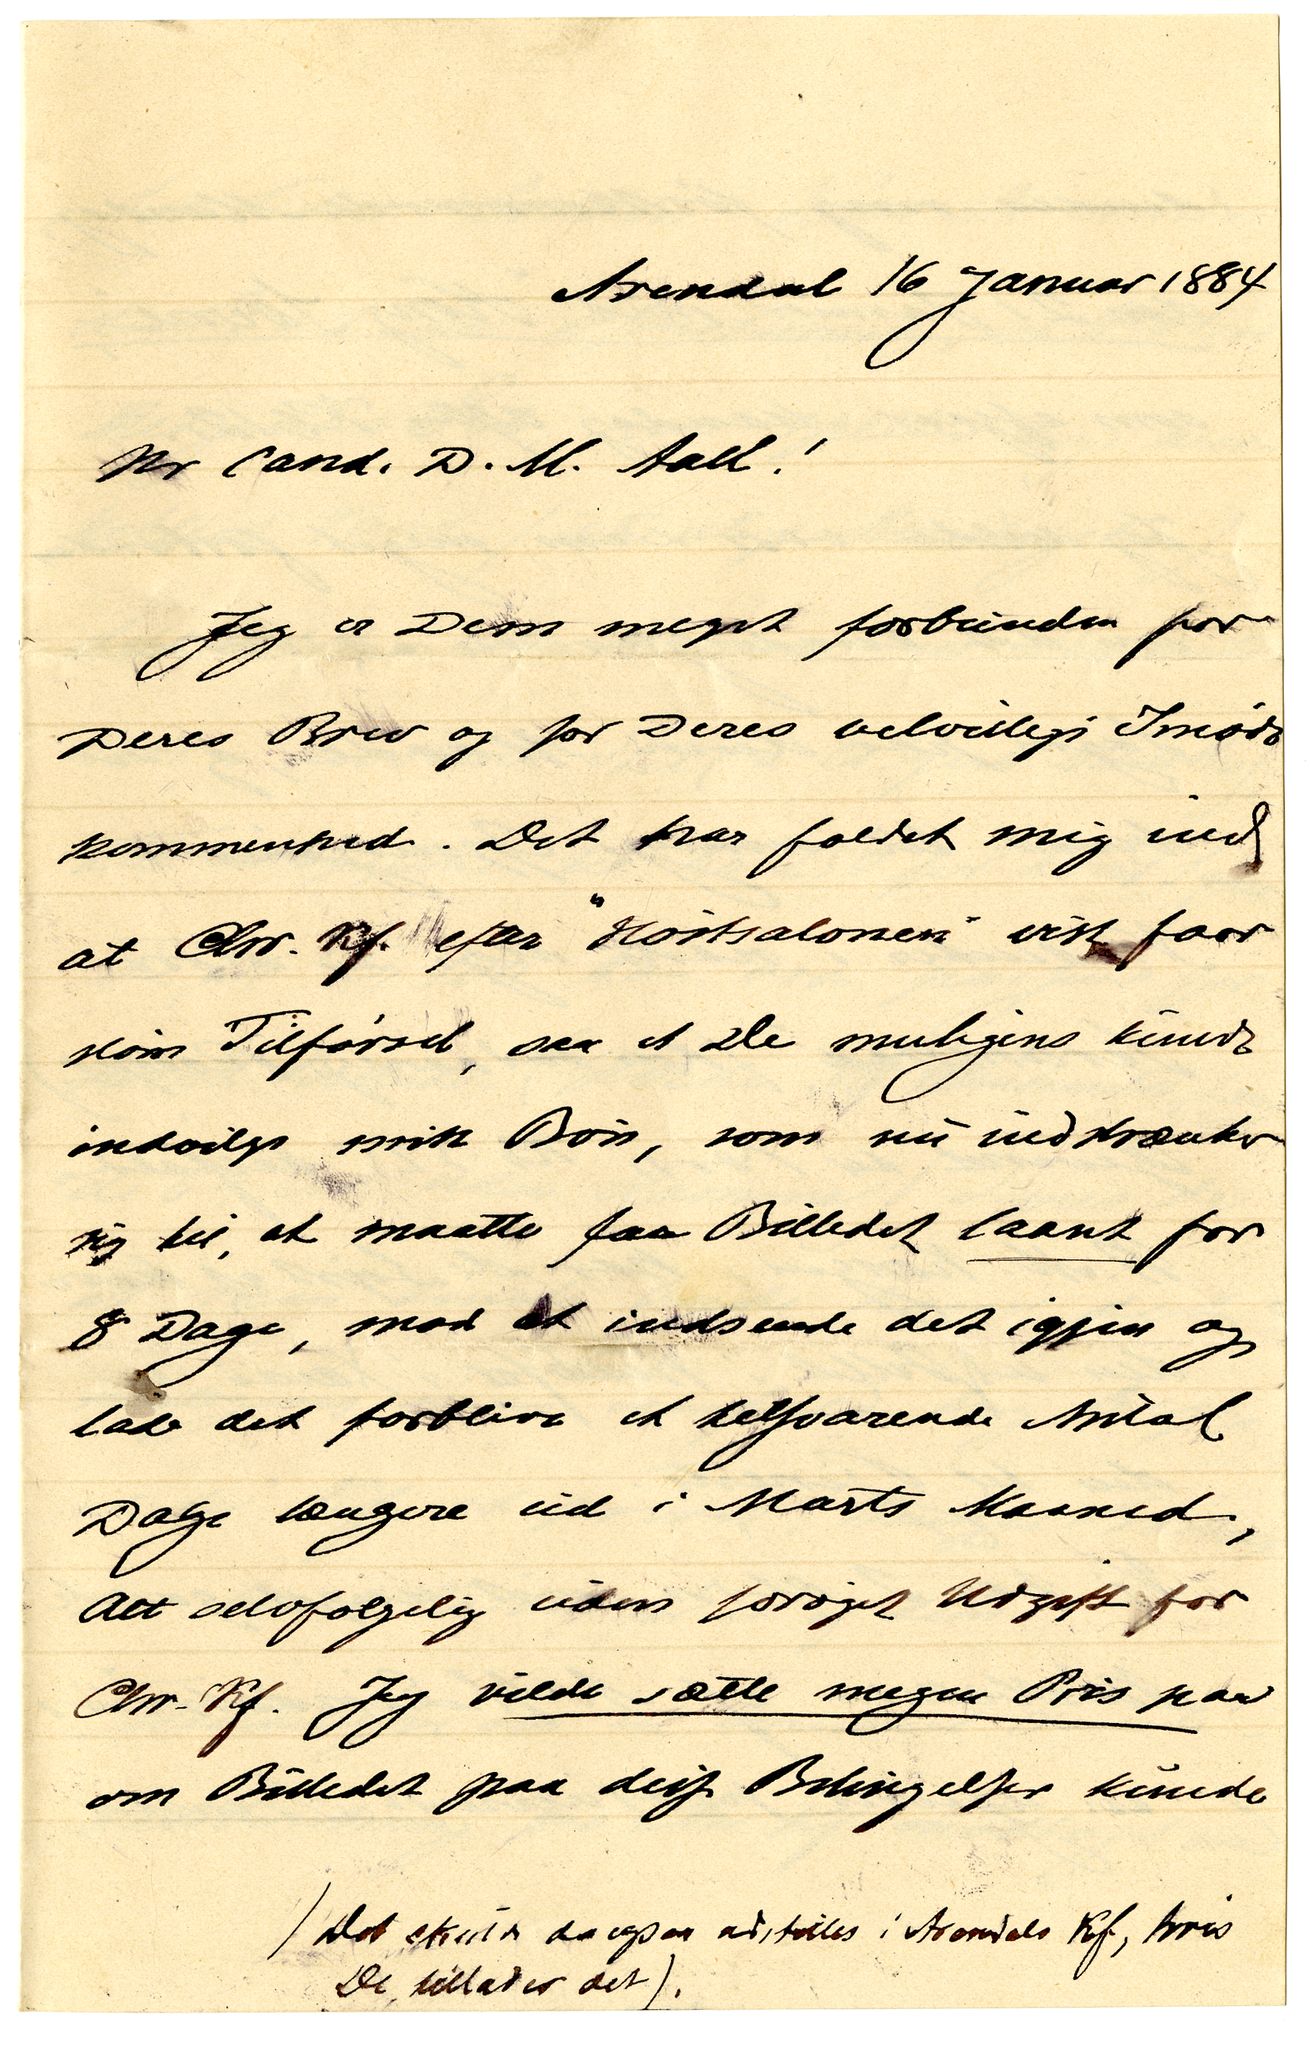 Arendal 16 Januar 1884
Hr Cand. D. M. Aall!
Jeg er Dem meget forbunden for
Deres Brev og for Deres velvillige Imøde
kommenhed. Det har faldet mig ind
at Chr. Kf. efter "Høstsalonen" vist faar
slöi Tilførsel, saa at De muligens kunde
indvilge mitt Bön, som nu indskrænker
sig til, at maatte faa Billedet laant for
8 Dage, mod at indsende det igjen og
lade det forblive et tilsvarende Antal
Dage længere ud i Marts Maaned,
Alt selvfølgelig uden forøget Udgift for
Chr. Kf. Jeg vilde sætte megen Pris paa
om Billedet paa disse Betingelser kunde
(Det skulde da ogsaa udstilles i Arendals Kf, hvis
De tillader det).